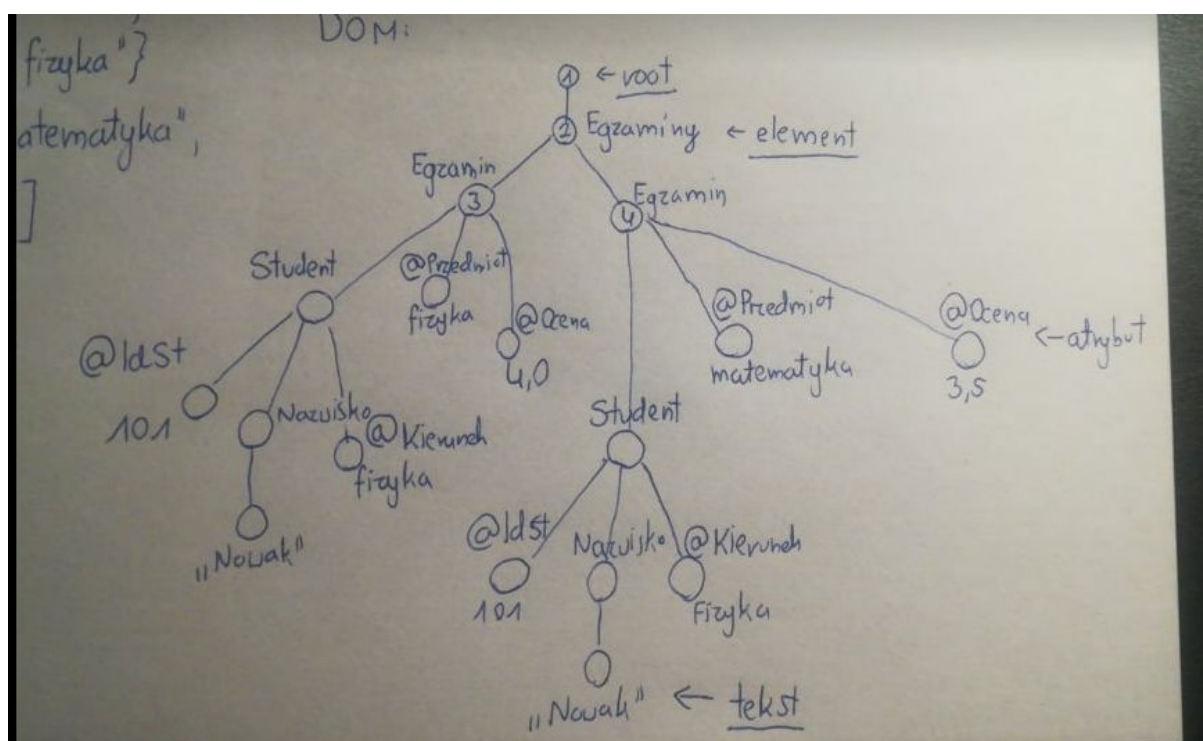 DOM:
fizyka"}
atematyka",
]
1 ← root
2 Egzaminy ← element
Egzamin
3
Egzamin
4
Student
@Przedmiot
fizyka
@Ocena
4,0
@Przedmiot
matematyka
@Ocena ← atrybut
3,5
@IdSt
101
Nazwisko
@Kierunek
fizyka
"Nowak"
Student
@IdSt
101
Nazwisko
@Kierunek
Fizyka
„Nowak" ← tekst